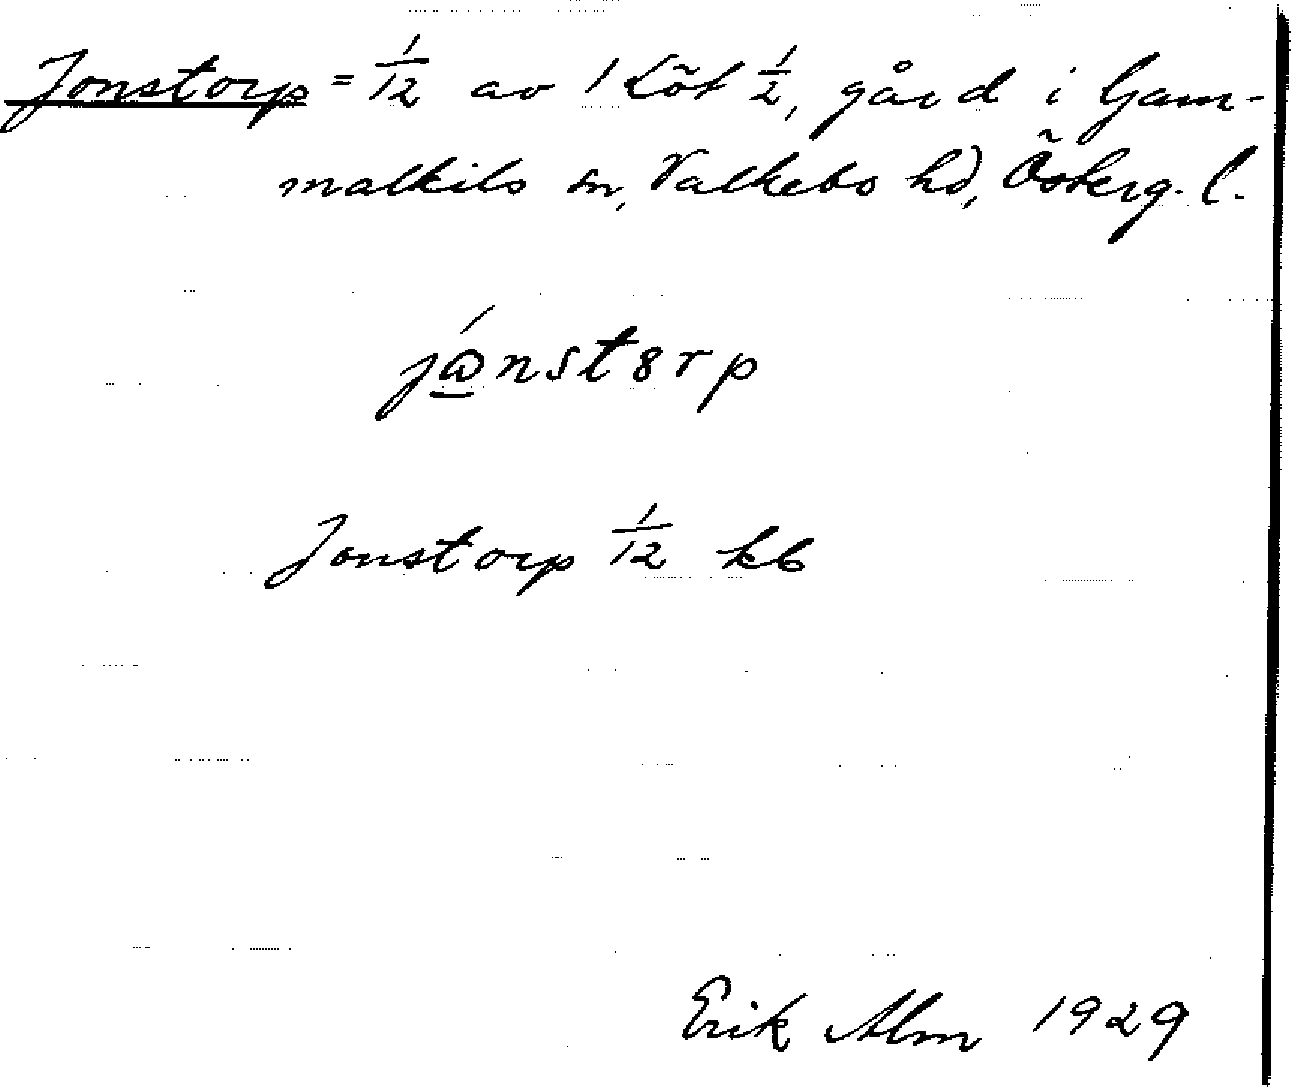 Jonstorp = 1/12 av 1 Löt 1/2, gård i Gam-
malkils sn, Valkebo hd, Österg. l.
jánstɵrp
Jonstorp 1/12 kb
Erik Alm 1929